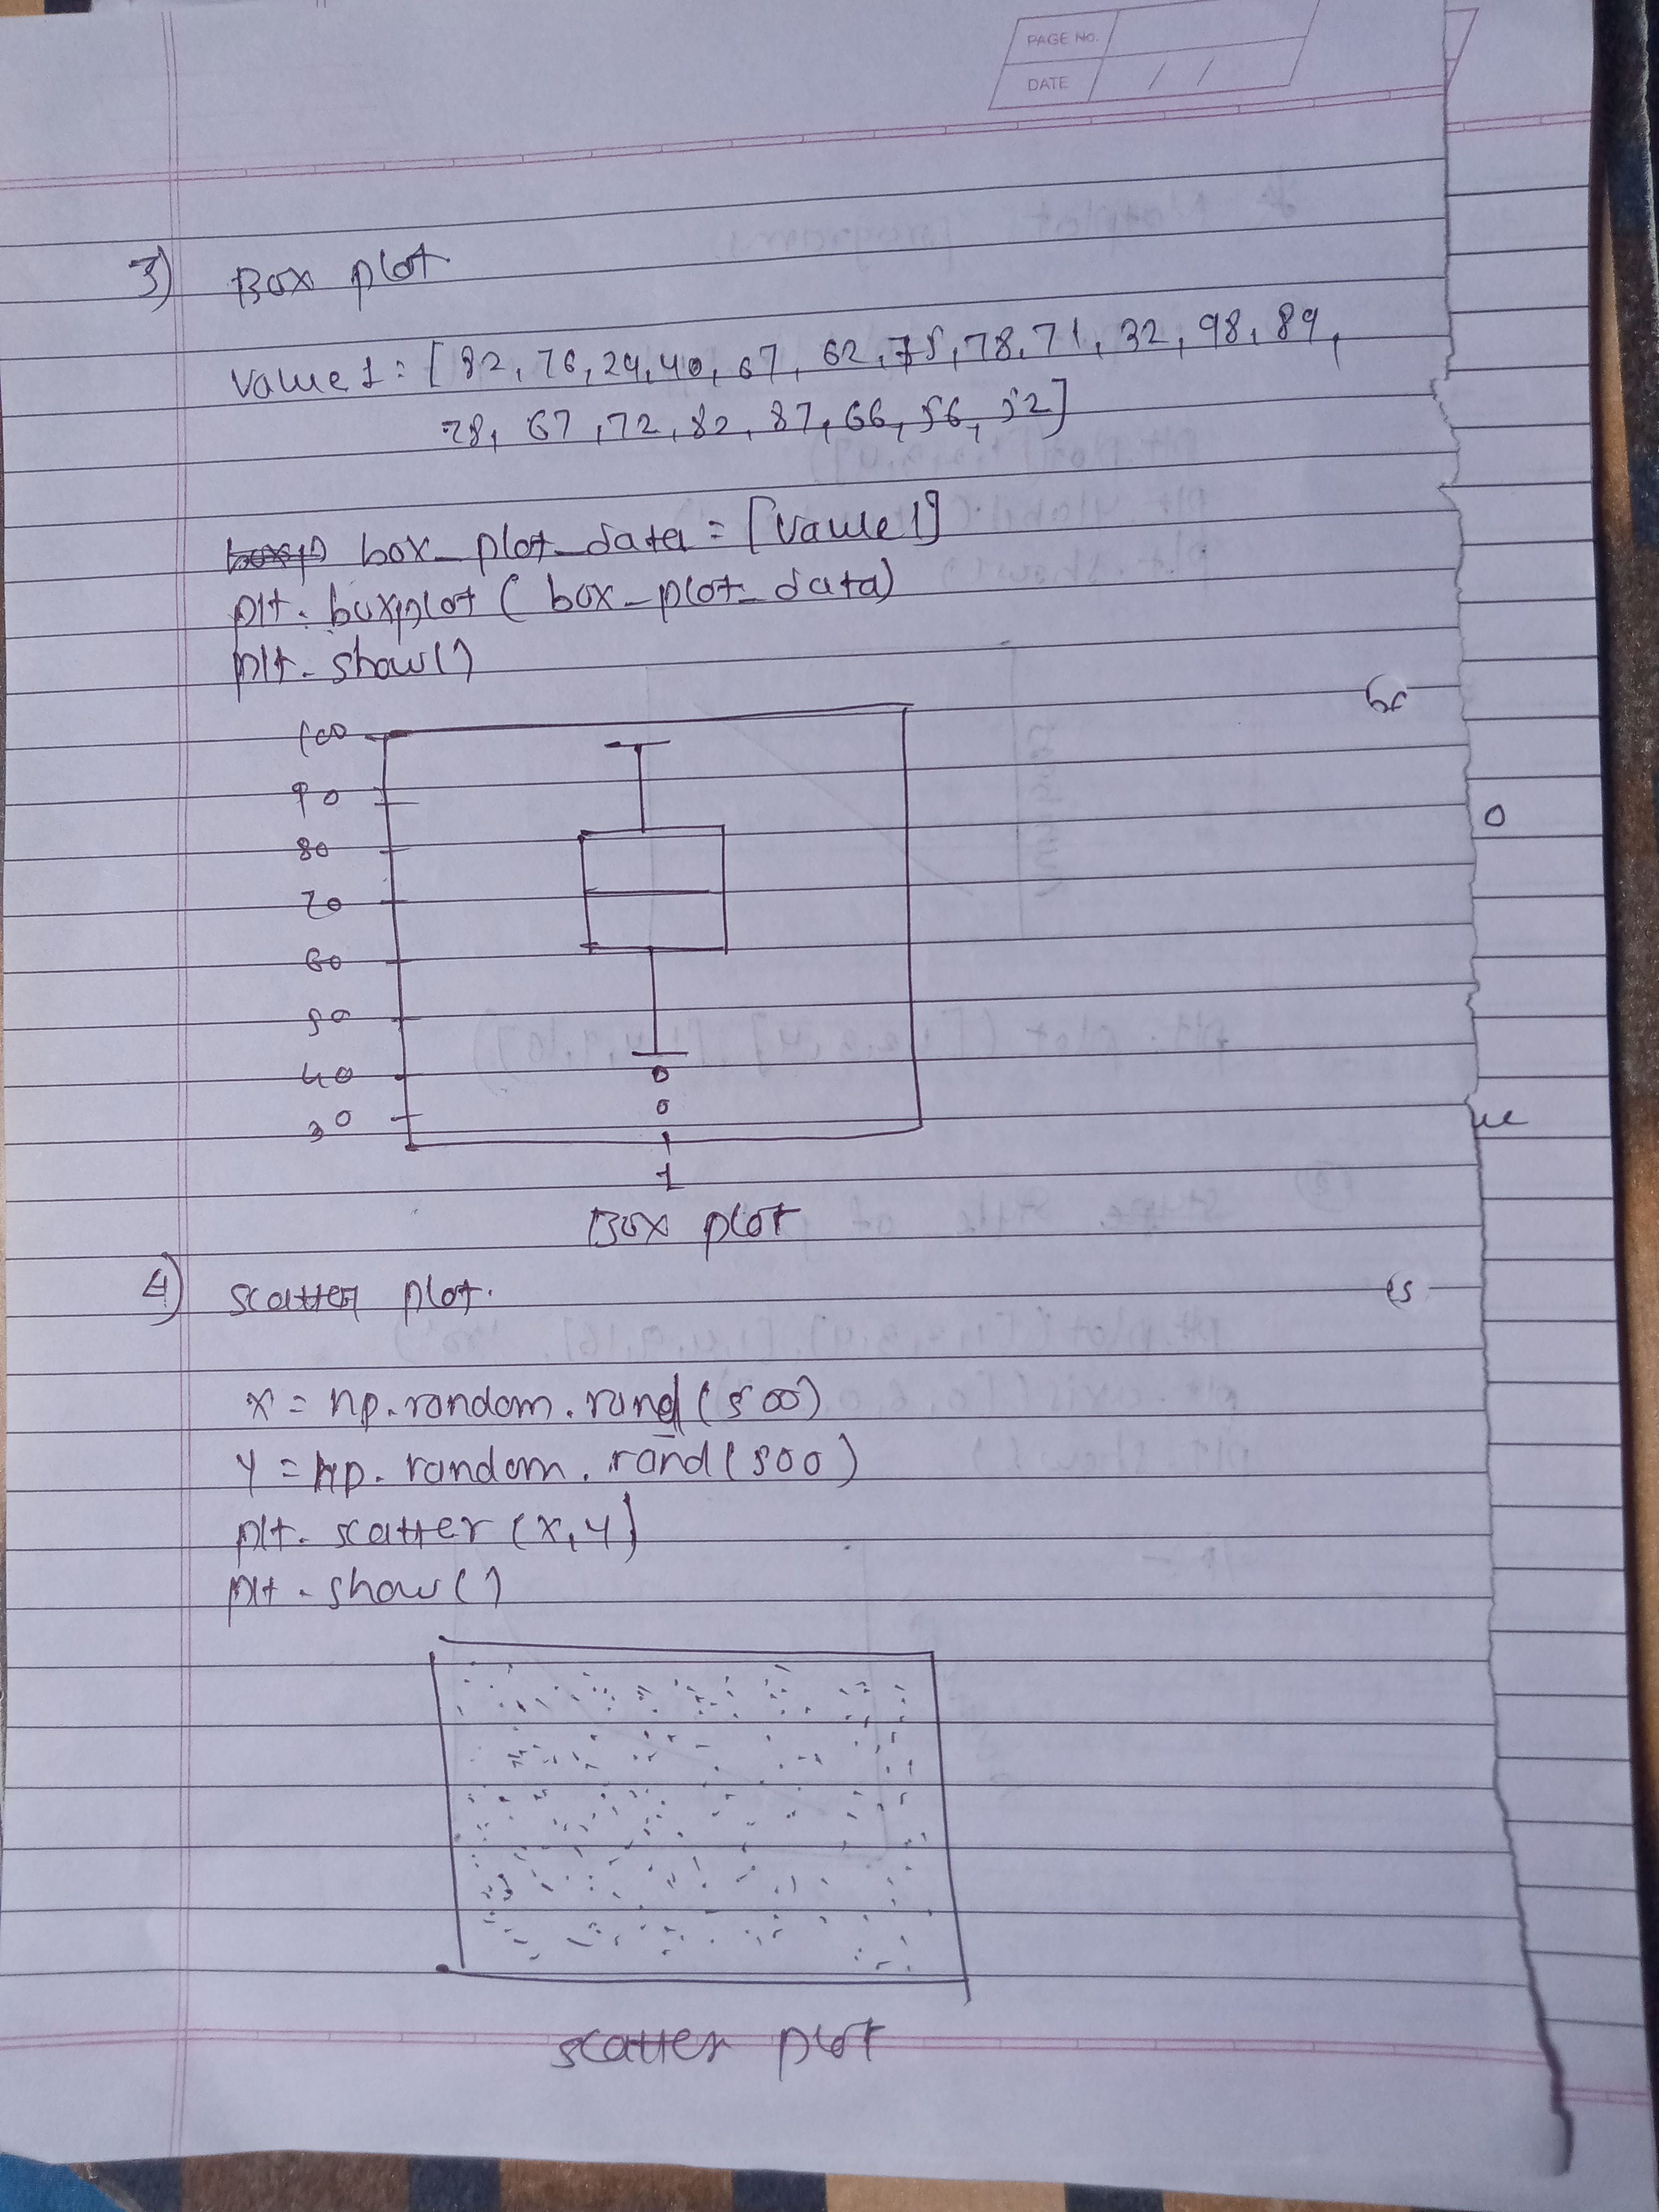 PAGE NO.
DATE / /
3) Box plot
value 1 = [82, 76, 24, 40, 67, 62, 75, 78, 71, 32, 98, 89,
78, 67, 72, 82, 87, 66, 56, 52]
box_plot_data = [value1]
plt. boxplot ( box_plot_data)
plt. show()
100
90
80
70
60
50
40
30
1
Box plot
4) scatter plot.
x = np.random.rand(500)
y = np.random.rand(500)
plt. scatter (x,y)
plt. show()
scatter plot